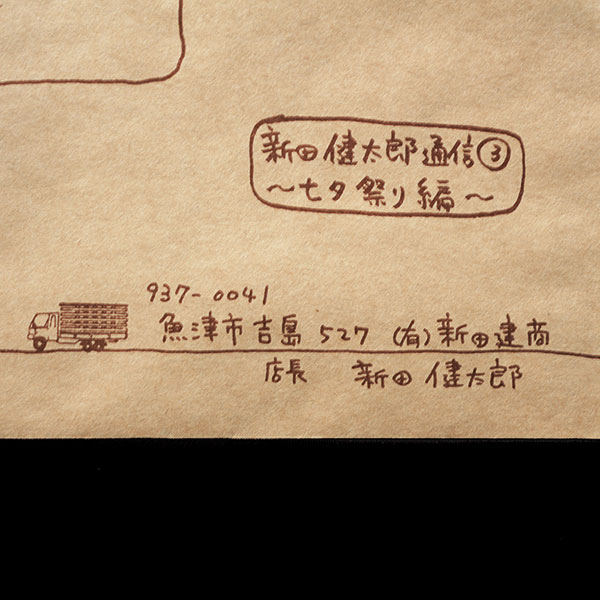 新田健太郎通信③
～七夕祭り編～
937-0041
魚津市吉島527 (有)新田建商
店長 新田健太郎